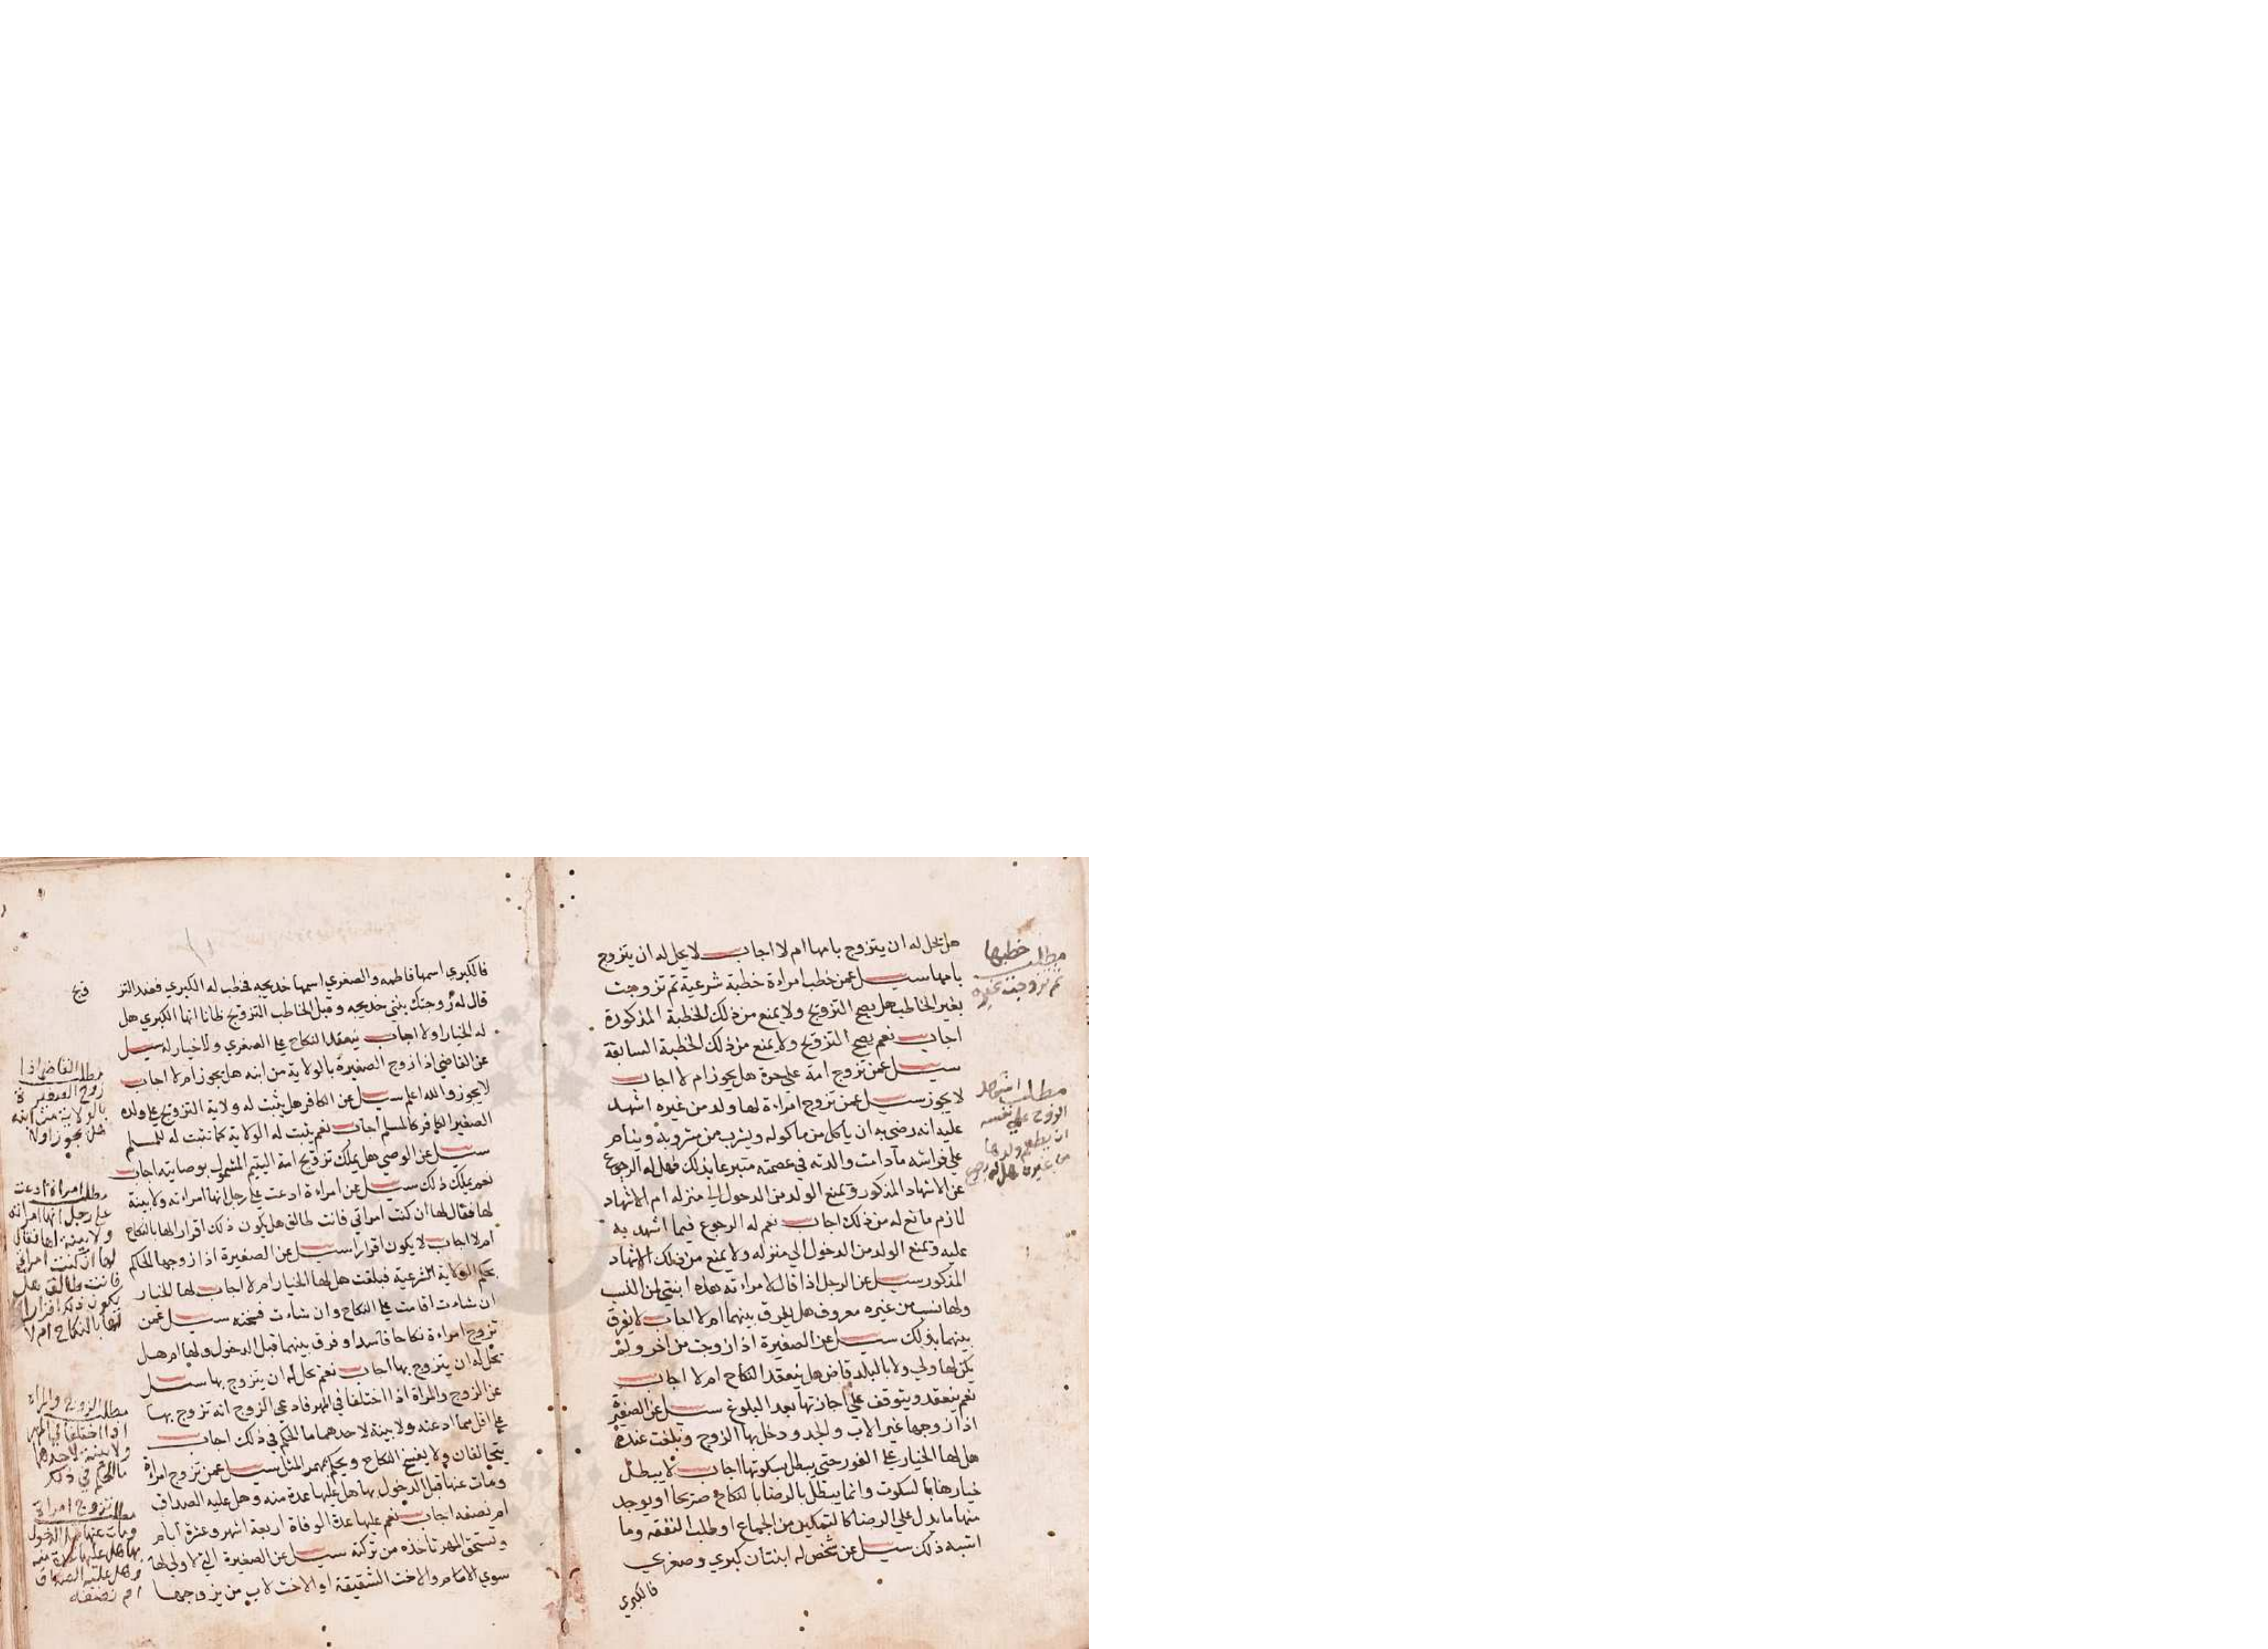 هل تحل له ان يتزوج بامها ام لا اجاب لا يحل له ان يتزوج
بامها سيل عمن خطب امراءة خطبة شرعية ثم تزوجت
بغير الخاطب هل يصح التزويج ولا يمنع من ذلك الخطبة المذكورة
اجاب نعم يصح التزويج ولا يمنع من ذلك الخطبة السابقة
سيل عمن تزوج امة علي حرة هل يجوز ام لا اجاب
لا يجوز سيل عمن تزوج امراءة لها ولد من غيره اشهد
عليه انه رضي به ان ياكل من ماكوله ويشرب من مشروبه وينام
علي فراشه مادامت والدته في عصمته متبرعا بذلك فهل له الرجوع
عن الاشهاد المذكور ويمنع الولد من الدخول الي منزله ام الاشهاد
لازم مانع له من ذلك اجاب نعم له الرجوع فيما اشهد به
عليه ويمنع الولد من الدخول الي منزله ولا يمنع من ذلك الاشهاد
المذكور سيل عن الرجل اذا قال لامراءته هذه ابنتي من النسب
ولها نسب من غيره معروف هل يفرق بينهما ام لا اجاب لا يفرق
بينهما بذلك سيل عن الصغيرة اذا زوجت من اخر ولم
يكن لها ولي ولا بالبلد قاض هل ينعقد النكاح ام لا اجاب
نعم ينعقد ويتوقف علي اجازتها بعد البلوغ سيل عن الصغيرة
اذا زوجها غير الاب والجد ودخل بها الزوج وبلغت عنده
هل لها الخيار علي الفور حتي يبطل بسكوتها اجاب لا يبطل
خيارها بالسكوت وانما يبطل بالرضا بالنكاح صريحا او يوجد
منها ما يدل علي الرضا كالتمكين من الجماع او طلب النفقه وما
اشبه ذلك سيل عن شخص له ابنتان كبري وصغري
فالكبري
مطلب خطبها
ثم تزوجت بغيره
مطلب اشهد
الزوج علي نفسه
ان يطعم ولدها
من غيره هل له رجوع
فالكبري اسمها فاطمه والصغري اسمها خديجه فخطب له الكبري فعند التز
ويج
قال له زوجتك بنتي خديجه وقبل الخاطب التزويج ظانا انها الكبري هل
له الخيار اولا اجاب ينعقد النكاح علي الصغري ولا خيار له سيل
عن القاضي اذا زوج الصغيرة بالولاية من ابنه هل يجوز ام لا اجاب
لا يجوز والله اعلم سيل عن الكافر هل يثبت له ولاية التزويج علي ولده
الصغير الكافر كالمسلم اجاب نعم يثبت له الولاية كما تثبت له للمسلم
سيل عن الوصي هل يملك تزويج امة اليتيم المشمول بوصايته اجاب
نعم يملك ذلك سيل عن امراءة ادعت علي رجل انها امراته ولا بينة
لها فقال لها ان كنت امراتي فانت طالق هل يكون ذلك اقرارا لها بالنكاح
ام لا اجاب لا يكون اقرارا سيل عن الصغيرة اذا زوجها الحاكم
بحكم الولاية الشرعية فبلغت هل لها الخيار ام لا اجاب لها الخيار
ان شاءت اقامت علي النكاح وان شاءت فسخته سيل عمن
تزوج امراءة نكاحا فاسدا وفرق بينهما قبل الدخول ولها ام هل
تحل له ان يتزوج بها اجاب نعم تحل له ان يتزوج بها سيل
عن الزوج والمراة اذا اختلفا في المهر فادعي الزوج انه تزوج بها
علي اقل مما ادعته ولا بينة لاحدهما ما الحكم في ذلك اجاب
يتحالفان ولا يفسخ النكاح ويحكم بمهر المثل سيل عمن تزوج امراة
ومات عنها قبل الدخول بها هل عليها عدة منه وهل عليه الصداق
ام نصفه اجاب نعم عليها عدة الوفاة اربعة اشهر وعشرة ايام
وتستحق المهر تاخذه من تركته سيل عن الصغيرة التي لا ولي لها
سوي الامام والاخت الشقيقة او الاخت لاب من يزوجها
مطلب القاضي اذا
زوج الصغيرة
بالولاية من ابنه
هل يجوز اولا
مطلب امراة ادعت
علي رجل انها امراته
ولا بينة لها فقال
لها ان كنت امراتي
فانت طالق هل
يكون ذلك اقرارا
لها بالنكاح ام لا
مطلب الزوج والمراة
اذا اختلفا في المهر
ولا بينة لاحدهما
ما الحكم في ذلك
مطلب تزوج امراة
ومات عنها قبل الدخول
بها هل عليها عدة منه
وهل عليه الصداق
ام نصفه